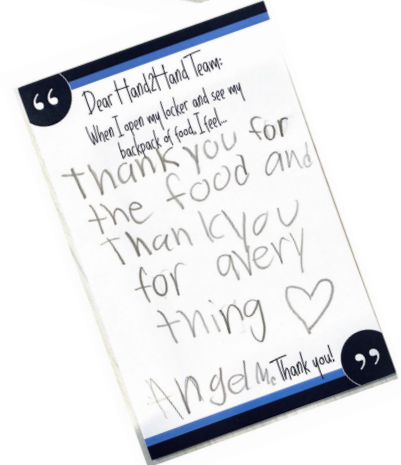 Dear Hand2Hand Team:
When I open my locker and see my
backpack of food, I feel...
thank you for
the food and
thank you
for avery
thing
Angel Mc Thank you!